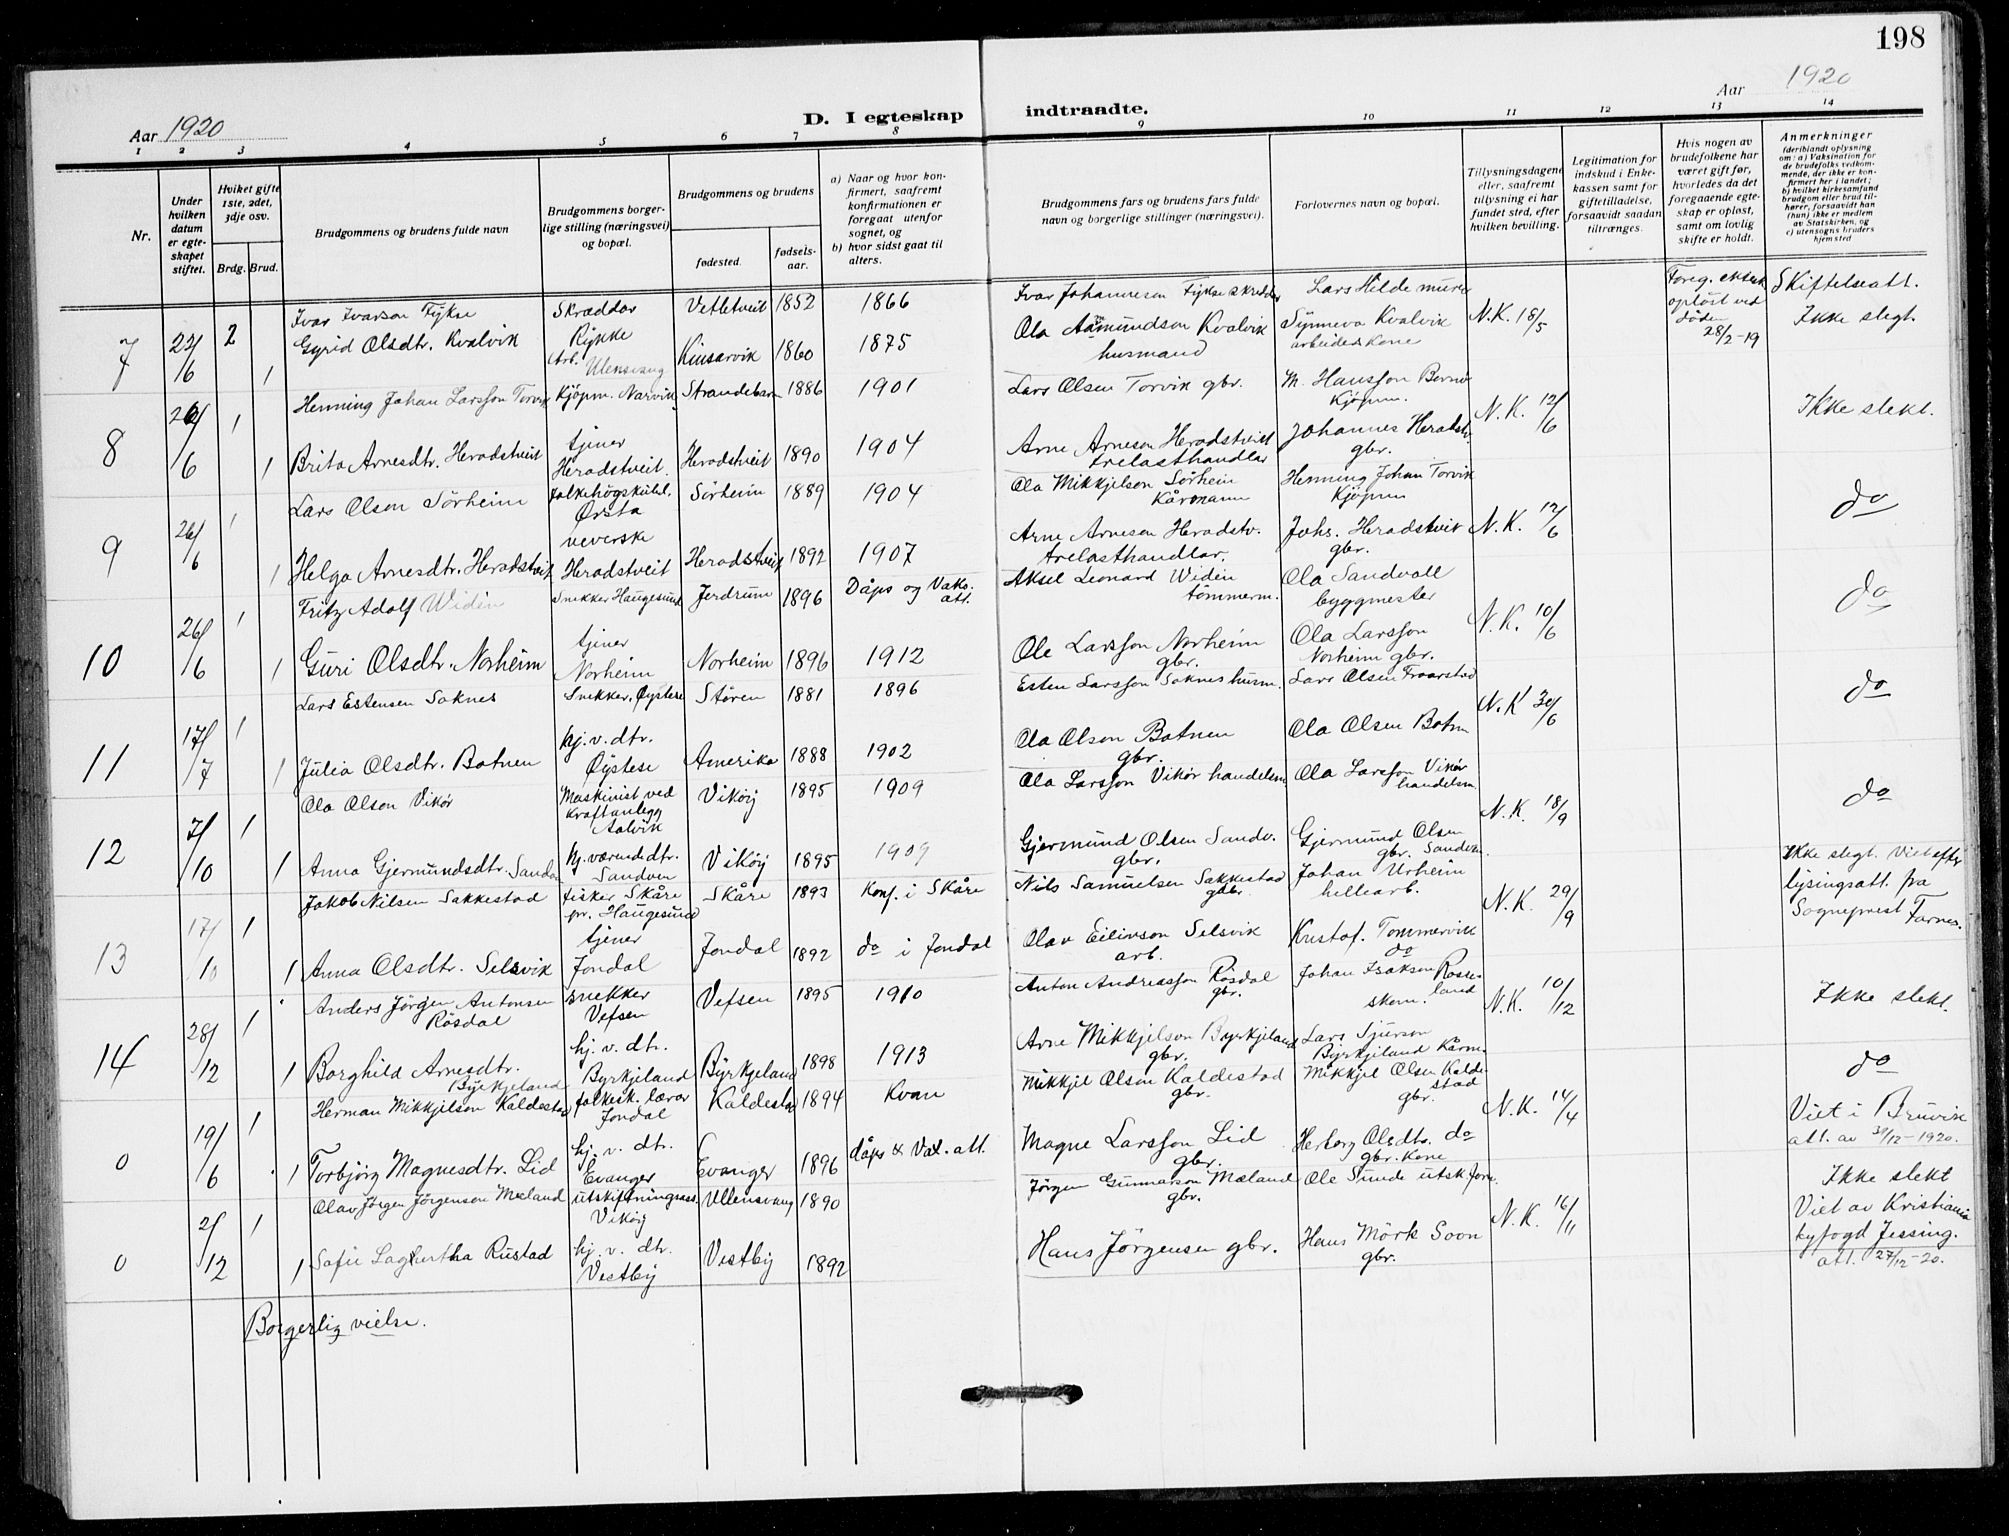 198
Aar 1920
D. I egteskap indtraadte.
Aar 1920
1 2 3 4 5 6 7 8 9 10 11 12 13 14
Nr.
Under hvilken datum er egteskapet stiftet.
Hviket gifte 1ste, 2det, 3dje osv.
Brdg. Brud.
Brudgommens og brudens fulde navn
Brudgommens borgerlige stilling (næringsvei) og bopæl.
Brudgommens og brudens
fødested.
fødsels-aar.
a) Naar og hvor konfirmert, saafremt konfirmationen er foregaat utenfor sognet, og
b) hvor sidst gaat til alters.
Brudgommens fars og brudens fars fulde navn og borgerlige stillinger (næringsvei).
Forlovernes navn og bopæl.
Tillysningsdagene eller, saafremt tillysning ei har fundet sted, efter hvilken bevilling.
Legitimation for indskud i Enkekassen samt for giftetilladelse, forsaavidt saadan tiltrænges.
Hvis nogen av brudefolkene har været gift før, hvorledes da det foregaaende egteskap er opløst, samt om lovlig skifte er holdt.
Anmerkninger (deriblandt oplysning om: a) Vaksination for de brudefolks vedkommende, der ikke er konfirmert her i landet; b) hvilket kirkesamfund brudgom eller brud tilhører, forsaavidt han (hun) ikke er medlem av Statskirken, og c) utensogns bruders hjemsted
7 22/6 2 Ivar Ivarson Fykse Skræddar Rykke Vetletveit 1852 1866 Ivar Johanneson Fykse skredder Lars Hilde murer N.K. 18/5 Foreg. ektesk. opløst ved døden 28/2-19 Skifteseatt. Ikke slegt.
1 Gyrid Olsdtr. Kvalvik Arb. Ulensvang Kinsarvik 1860 1875 Ola Aamundson Kvalvik husmand Synneva Kvalvik arbeiderskone
8 26/6 1 Henning Johan Larsson Torvik Kjøpm. Narvik Strandebarm 1886 1901 Lars Olsen Torvik gbr. M. Hansson Kjøpm. N.K. 12/6 Ikke slekt.
1 Brita Arnesdtr. Heradstveit tjener Heradstveit. Heradstveit 1890 1904 Arne Arneson Heradstveit trelasthandlar Johannes Heradstv. gbr.
9 26/6 1 Lars Olson Sörheim folkehøgskulel. Ørsta Sörheim 1889 1904 Ola Mikkjelson Sörheim Kårmann Henning Johan Torvik Kjöpm N.K. 12/6 do
1 Helga Arnesdtr. Heradstveit veverske Heradstveit Heradstveit 1892 1907 Arne Arneson Heradstv. trelasthandlar. Johs. Heradstveit gbr.
10 26/6 1 Fritz Adolf Widén Snekker Haugesund Jerdrum 1896 Dåps og Vaks. att. Aksel Leonard Widén tömmerm. Ola Sandvall byggmester N.K. 10/6 do
1 Guri Olsdtr. Norheim tjener Norheim Norheim 1896 1912 Ole Larsson Norheim gbr. Ola Larsson Norheim gbr.
11 17/7 1 Lars Estensen Soknes Snekker. Øystese Støren 1881 1896 Esten Larsson Soknes husm. Lars Olsen Fraarstad N.K 30/6 do
1 Julia Olsdtr. Botnen hj. v. dtr. Øystese Amerika 1888 1902 Ola Olson Botnen gbr. Ola Olsen Botn
12 7/10 1 Ola Olson Vikør Maskinist ved Kraftanlegg Aalvik Vikøy 1895 1909 Ola Larsson Vikör handelsm. Ola Larsson Vikør handelsm. N.K. 18/9 do
1 Anna Gjermundsdtr. Sandven hj. værende dtr. Sandven Vikøy 1895 1909 Gjermund Olsen Sandv. gbr. Gjermund Olsen gbr. Sandven.
13 17/10 1 Jakob Nilsen Sakkestad fisker Skåre pr. Haugesund Skåre 1893 Konf. i Skåre Nils Samuelsen Sakkestad gbr. Johan Urheim hellearb. N.K. 29/9 Ikke slegt. Viet efter lysingsatt. fra Sogneprest Farnes.
1 Anna Olsdtr. Selsvik tjener Jondal Jondal 1892 do i Jondal Olav Eilivson Selsvik arb. Kristof. Tommervik do
14 28/12 1 Anders Jörgen Antonsen Rösdal snekker Vefsen Vefsen 1895 1910 Anton Andreasson Rösdal gbr. Johan Isaksen Rosseland skom. N.K. 10/12 Ikke slekt.
1 Borghild Arnesdtr. Byrkjeland hj. v. dtr. Byrkjeland Byrkjeland 1898 1913 Arne Mikkjelson Byrkjeland gbr. Lars Sjurson Byrkjeland Kårm. do
0 19/6 1 Herman Mikkjelson Kaldestad folkesk. lærar Jondal Kaldestad 1894 Kvam Mikkjel Olson Kaldestad gbr. Mikkjel Olsen Kaldestad gbr. N.K. 14/4 Viet i Bruvik att. av 31/12-1920.
1 Torbjörg Magnesdtr. Lid hj. v. dtr. Evanger Evanger 1896 dåps & Vax. att. Magne Larsson Lid gbr. Herborg Olsdtr. do gbr. kone
0 2/12 1 Olav Jörgen Jörgenson Mæland utskiftningsass. Vikøy Ullensvang 1890 Jörgen Gunnarson Mæland gbr. Ole Sunde utsk.form. N.K. 16/11 Ikke slekt Viet av Kristiania byfogd Jessing. att. 27/12-20.
1 Sofie Lagertha Rustad hj. v. dtr. Vestby Vestby 1892 Hans Jörgensen gbr. Hans Mörk Soon gbr.
Borgerlig vielse.